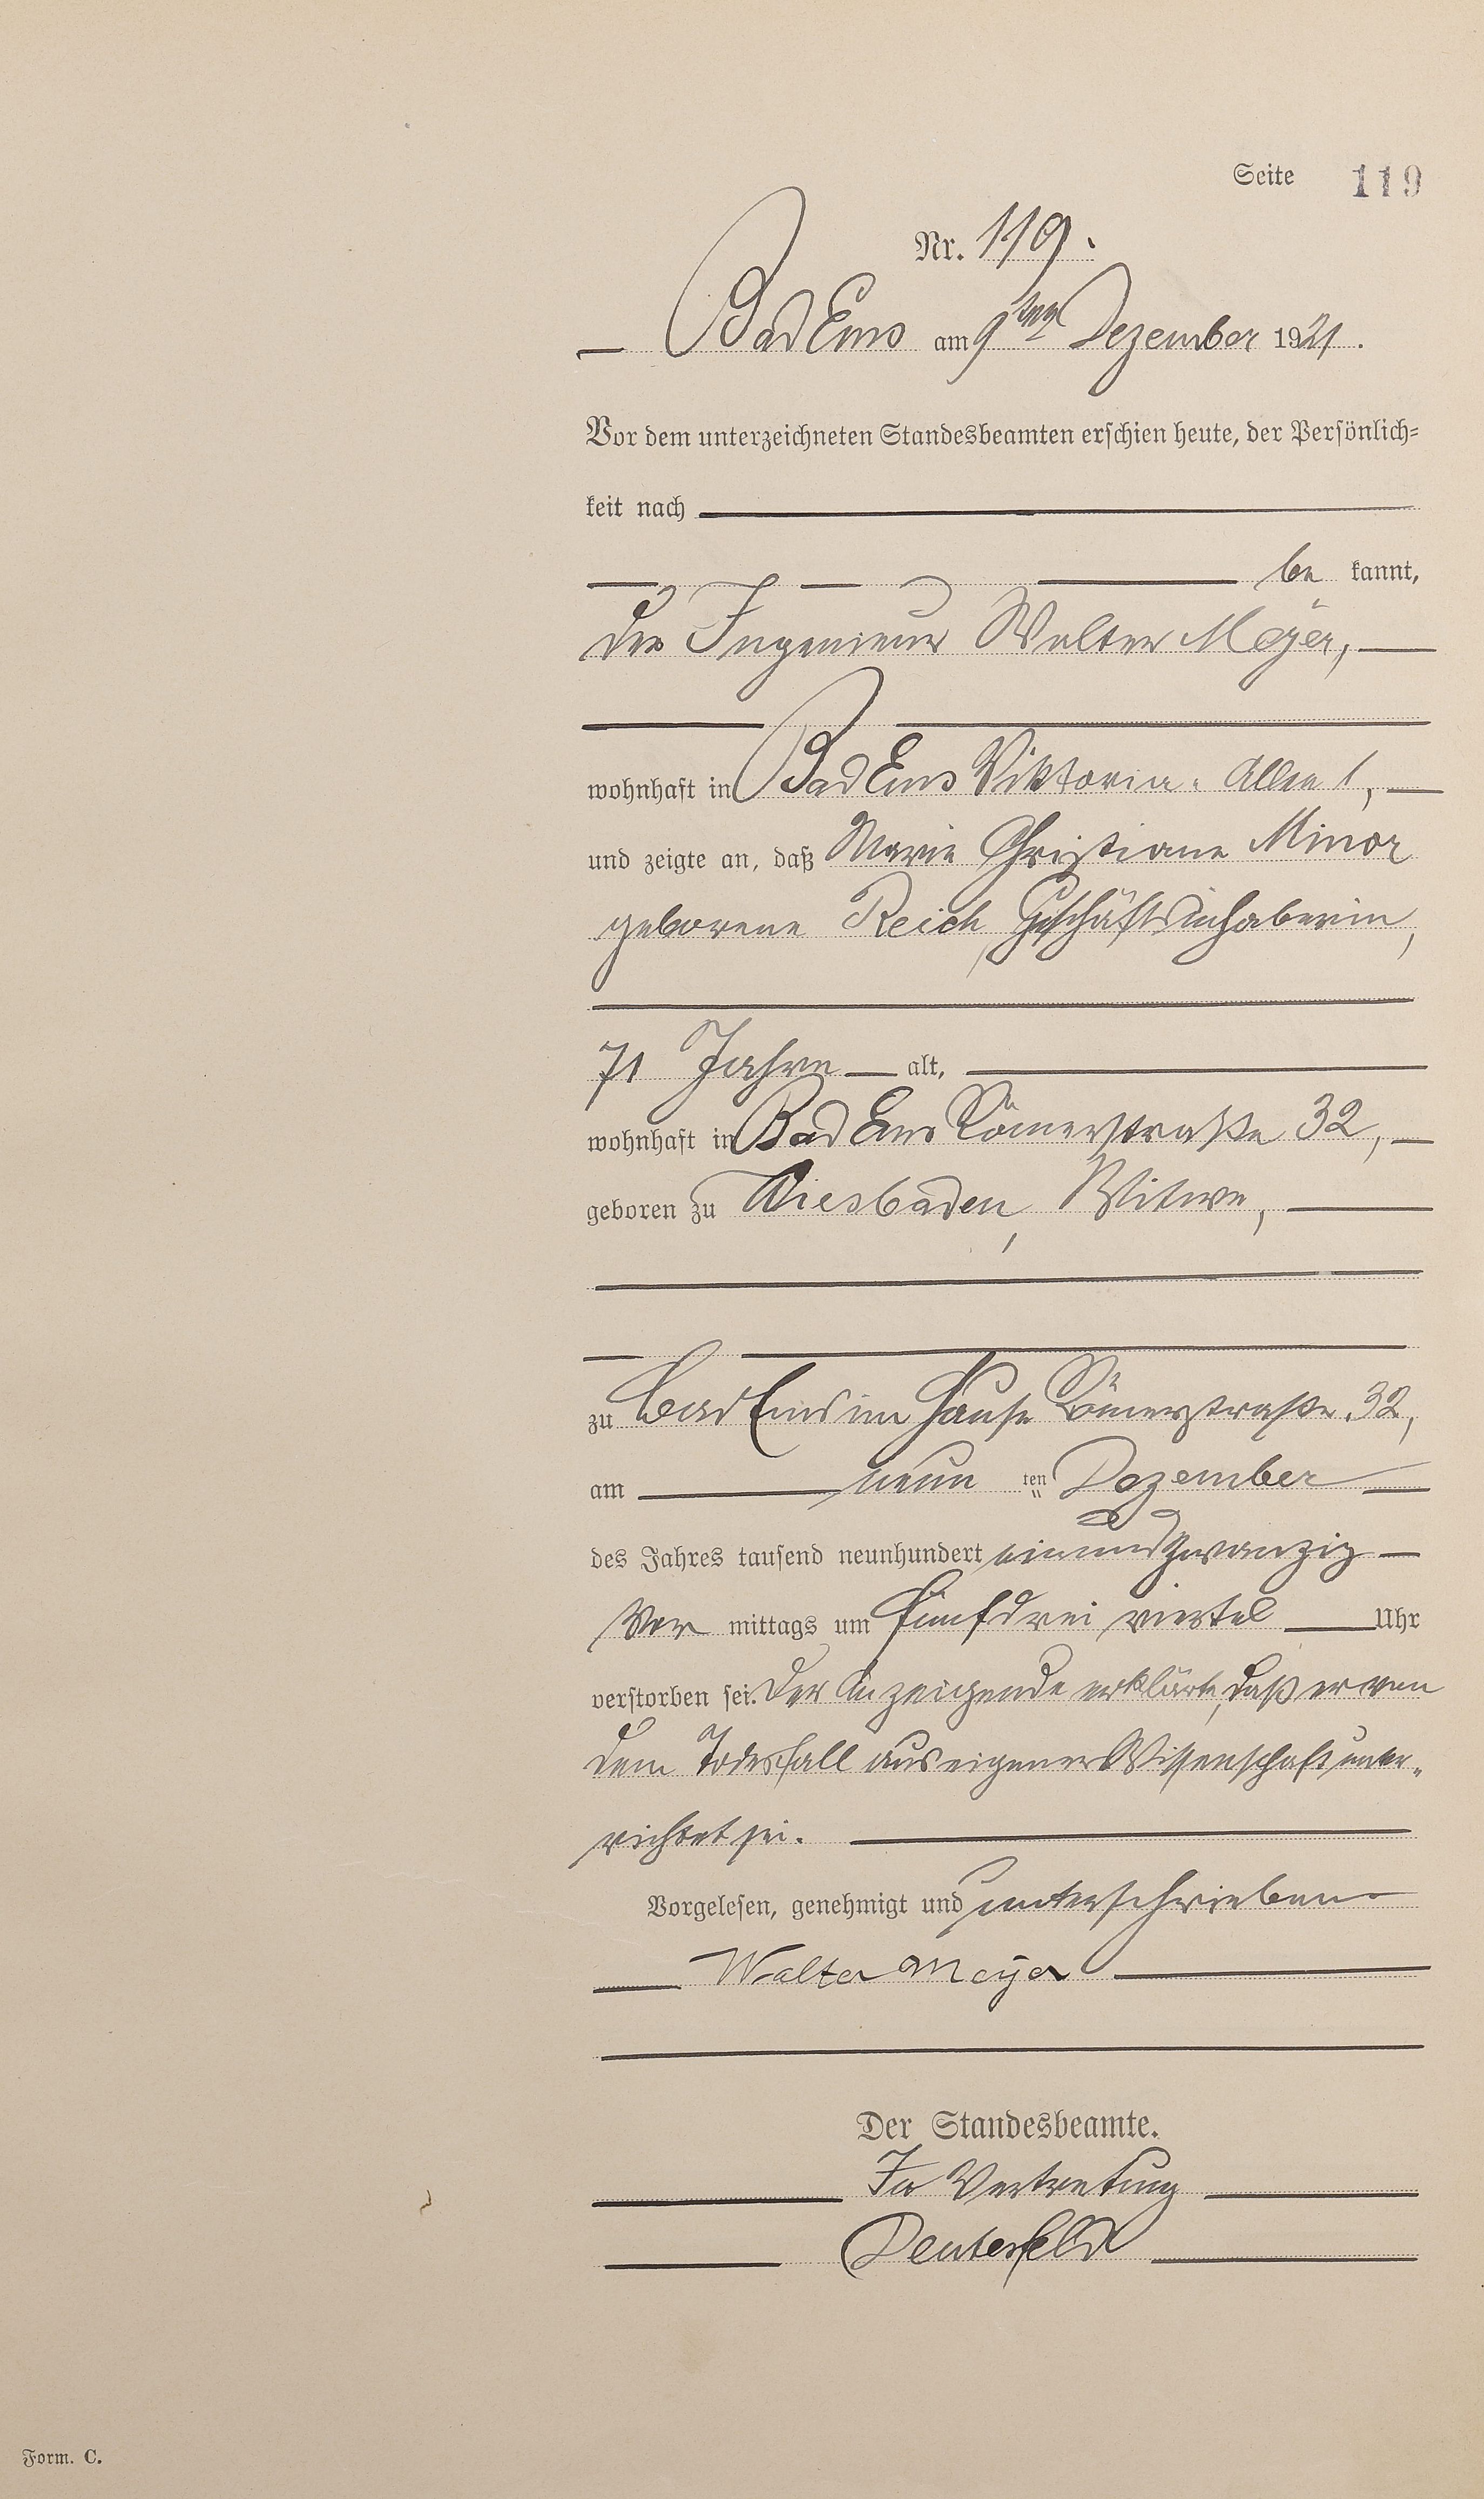 Seite 119
Nr. 119.
Bad Ems am 9ten Dezember 1921.
Vor dem unterzeichneten Standesbeamten erschien heute, der Persönlich-
keit nach
be kannt,
der Ingenieur Walter Meyer,
wohnhaft in Bad Ems Viktoria-Allee 1,
und zeigte an, daß Marie Christiane Minor
geborene Reich, Geschäftsinhaberin,
71 Jahre alt,
wohnhaft in Bad Ems Römerstraße 32,
geboren zu Wiesbaden, Witwe,
zu Bad Ems im Hause Römerstraße 32,
am neun ten Dezember
des Jahres tausend neunhundert einundzwanzig
Vor mittags um fünf drei viertel Uhr
verstorben sei. Der Anzeigende erklärte, daß er von
dem Todesfall aus eigener Wissenschaft unter-
richtet sei.
Vorgelesen, genehmigt und unterschrieben
Walter Meyer
Der Standesbeamte.
In Vertretung
Deutesfeld
Form. C.